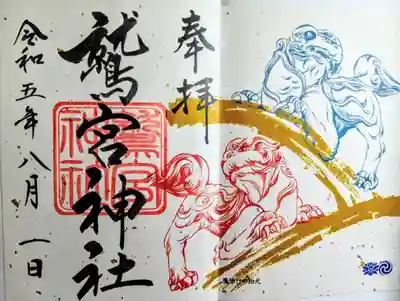 奉拝
鷲宮神社
令和五年八月一日
鷲宮神社